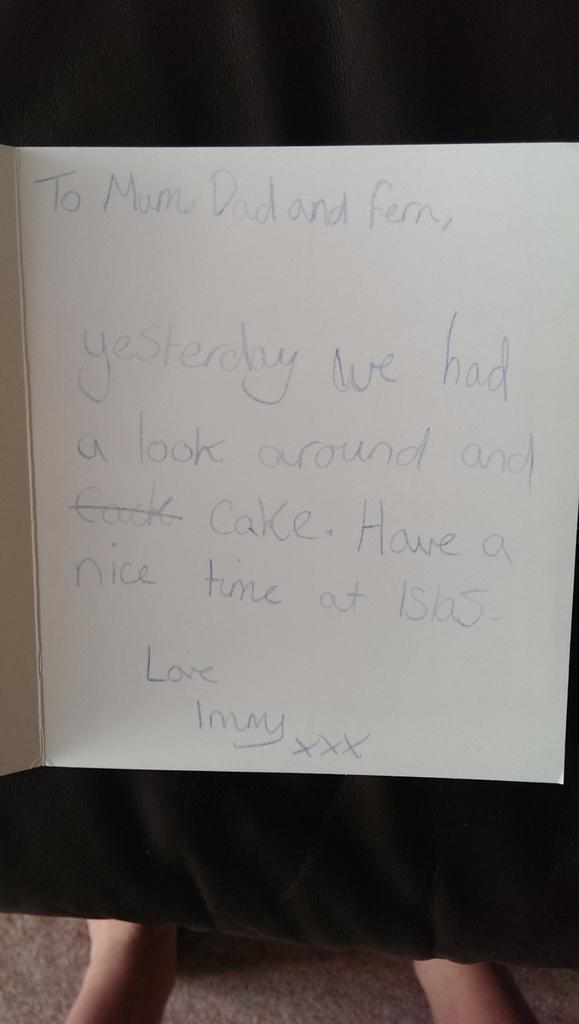 To Mum Dad and Fern,
yesterday we had
a look around and
cack cake. Have a
nice time at Islas.
Love
Immy xxx